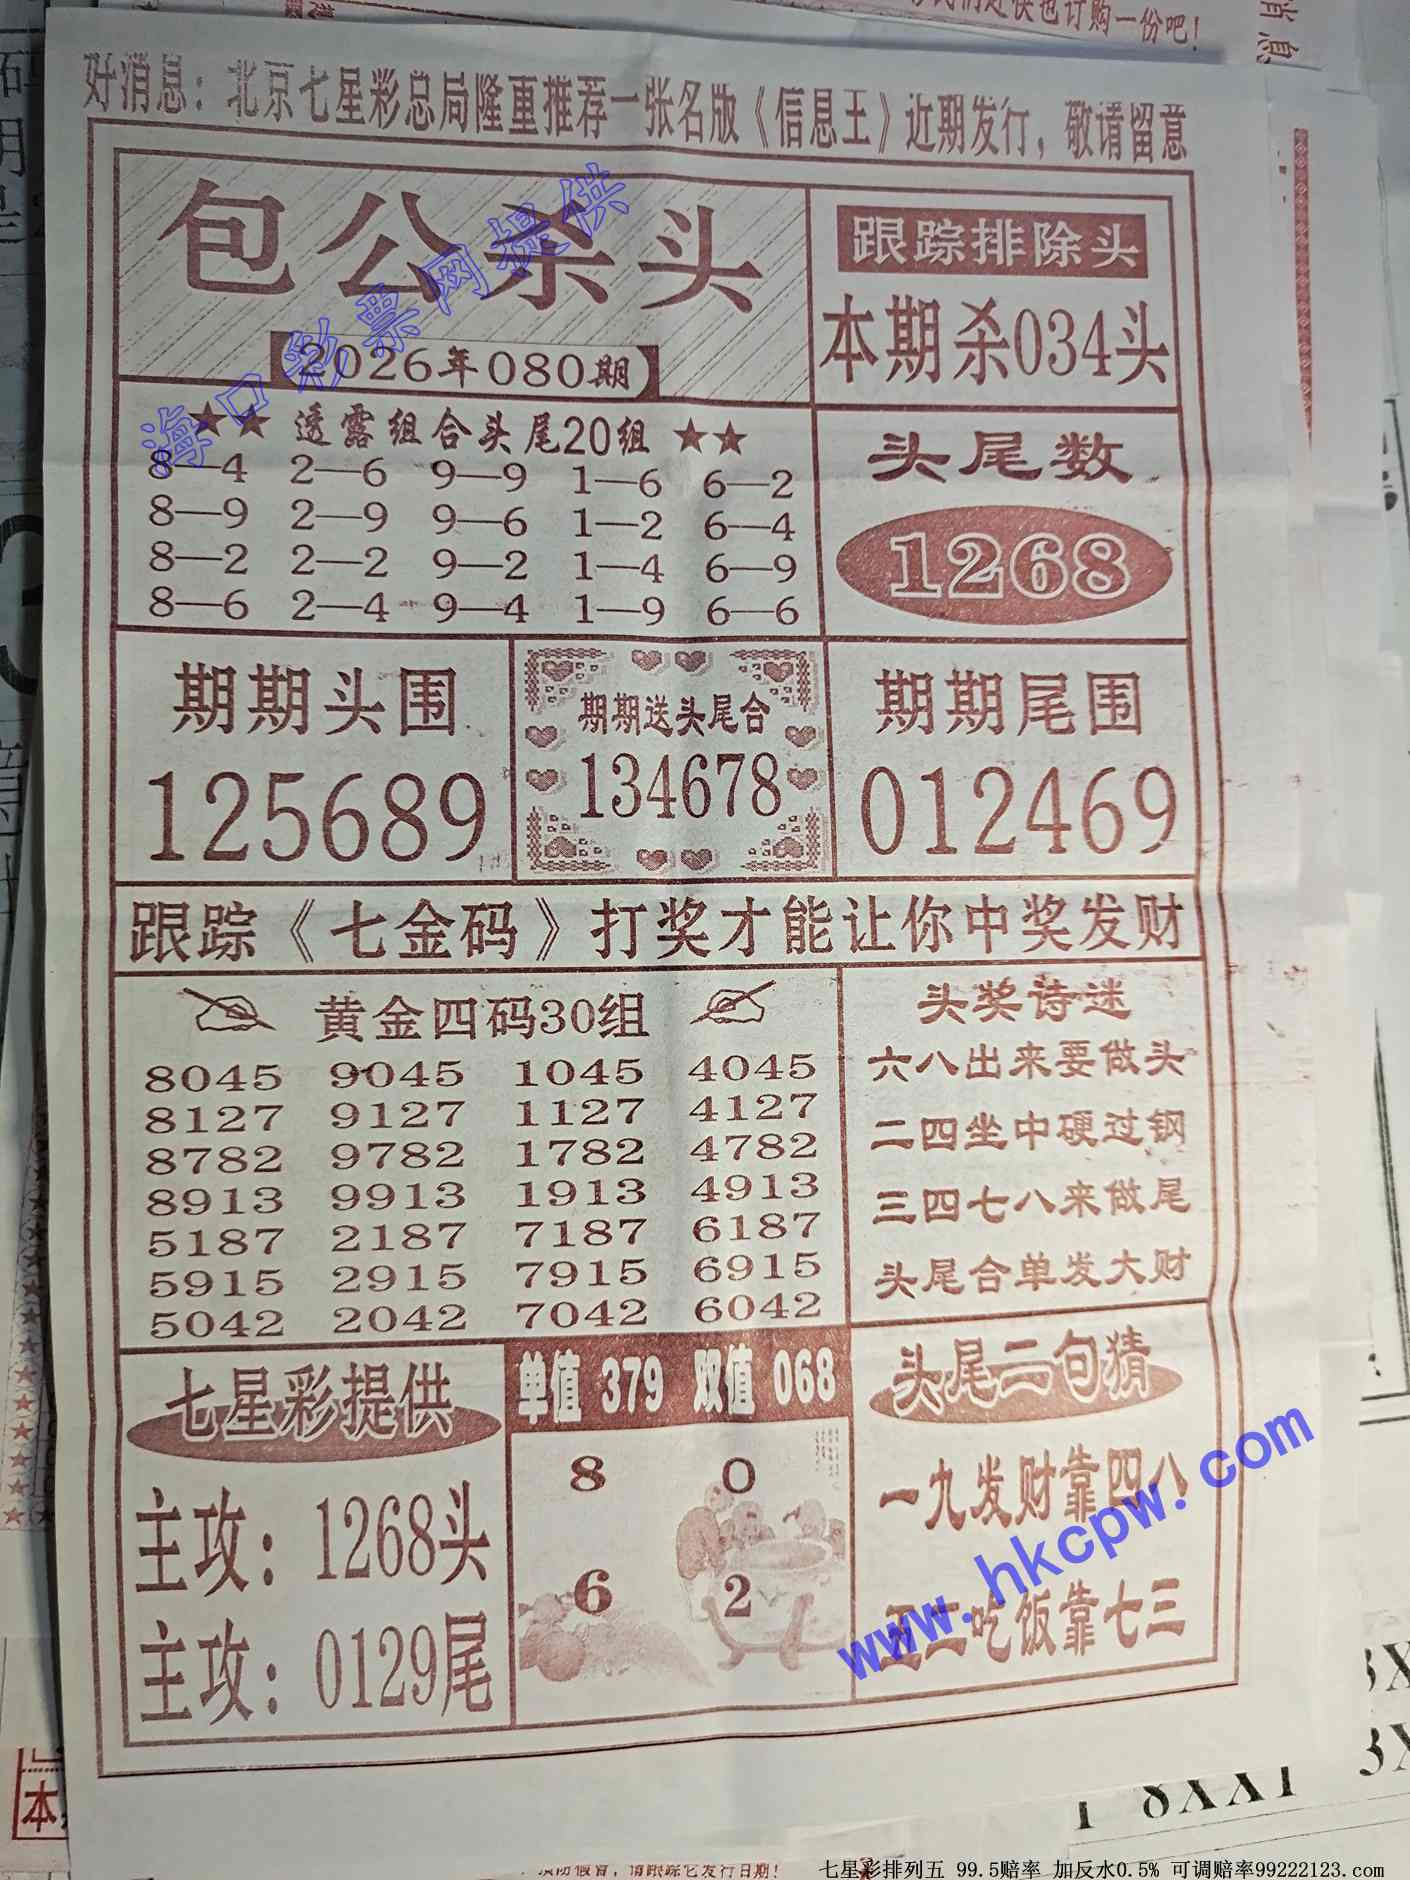 好消息：北京七星彩总局隆重推荐一张名版《信息王》近期发行，敬请留意
包公杀头
【2026年080期】
跟踪排除头
本期杀034头
★★ 透露组合头尾20组 ★★
8—4 2—6 9—9 1—6 6—2
8—9 2—9 9—6 1—2 6—4
8—2 2—2 9—2 1—4 6—9
8—6 2—4 9—4 1—9 6—6
头尾数
1268
期期头围
125689
期期送头尾合
134678
期期尾围
012469
跟踪《七金码》打奖才能让你中奖发财
黄金四码30组
8045 9045 1045 4045
8127 9127 1127 4127
8782 9782 1782 4782
8913 9913 1913 4913
5187 2187 7187 6187
5915 2915 7915 6915
5042 2042 7042 6042
头奖诗迷
六八出来要做头
二四坐中硬过钢
三四七八来做尾
头尾合单发大财
七星彩提供
主攻：1268头
主攻：0129尾
单值 379 双值 068
8 0
6 2
头尾二句猜
一九发财靠四八
五二吃饭靠七三
海口彩票网提供
www.hkcpw.com
七星彩排列五 99.5赔率 加反水0.5% 可调赔率99222123.com